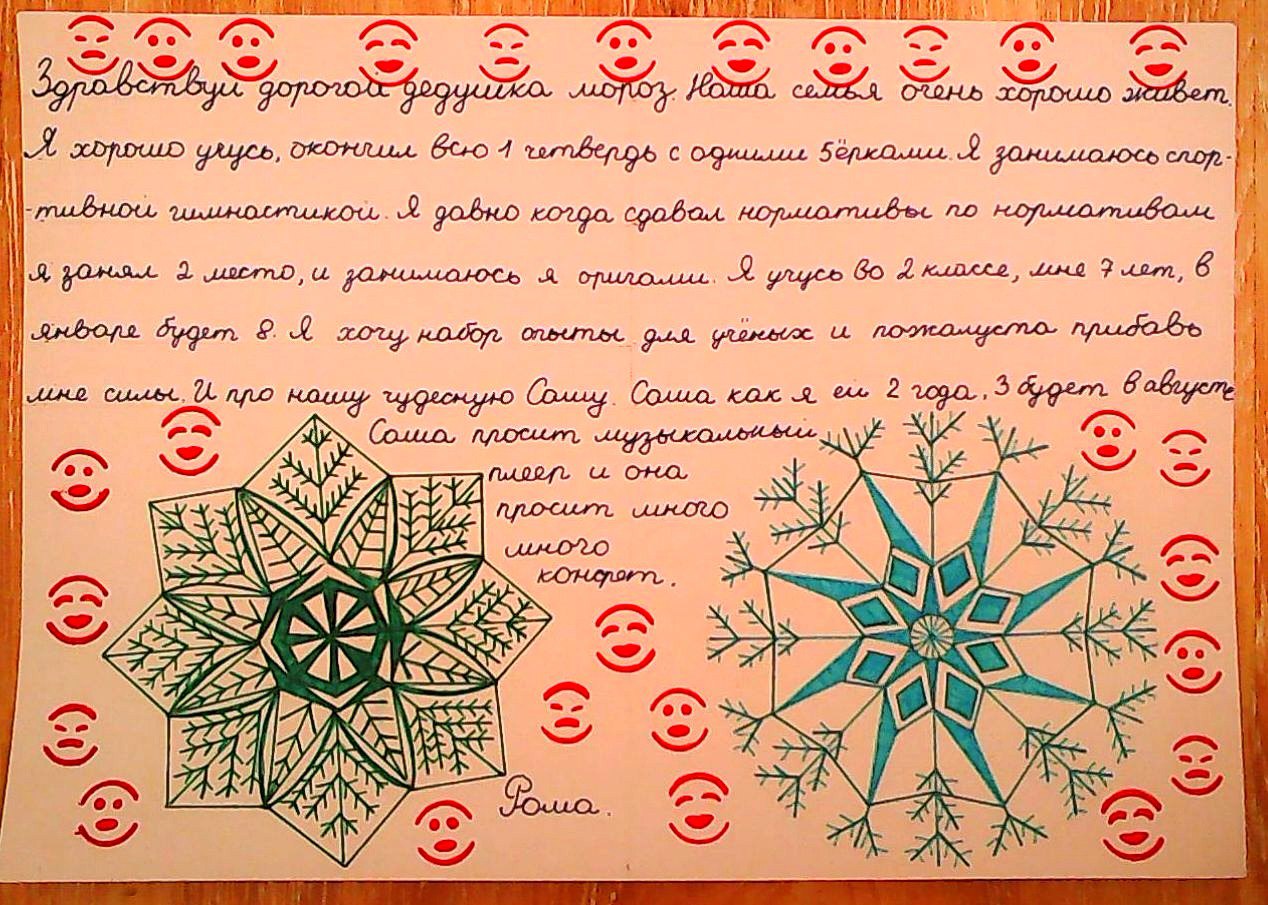 Здравствуй дорогой дедушка мороз. Наша семья очень хорошо живет.
Я хорошо учусь, окончил всю 1 четвердь с одними 5ёрками. Я занимаюсь спор-
-тивной гимнастикой. Я давно когда сдавал нормативы по нормативам
я занял 2 место, и занимаюсь я оригами. Я учусь во 2 классе, мне 7 лет, в
январе будет 8. Я хочу набор опыты для учёных и пожалуста прибавь
мне силы. И про нашу чудесную Сашу. Саша как я ей 2 года, 3 будет в августе
Саша просит музыкальный
плеер и она
просит много
много
конфет.
Рома.